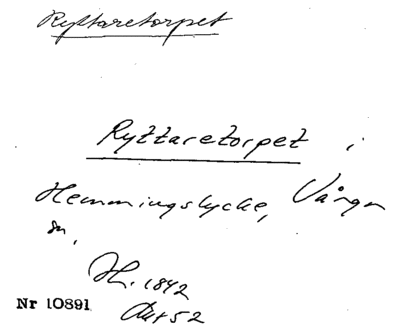 Ryttaretorpet
Ryttaretorpet i
Hemmingslycke, Vånga
sn,
H. 1842
Nr 10891